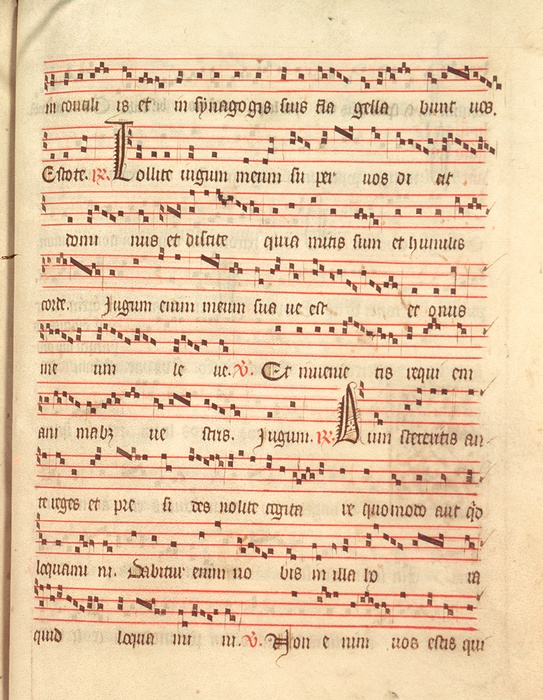 in concili is et in synagogis suis fla gella bunt uos.
Estote. R. Tollite iugum meum su per uos di cit
domi nus et discite quia mitis sum et humilis
corde. Iugum enim meum sua ue est et onus
me um le ue. V. Et inuenie tis requi em
ani mabz ue stris. Iugum. R. Dum steteritis an
te reges et pre si des nolite cogita re quomodo aut qd
loquami ni. Dabitur enim uo bis in illa ho ra
quid loqua mi ni. V. Non e nim uos estis qui